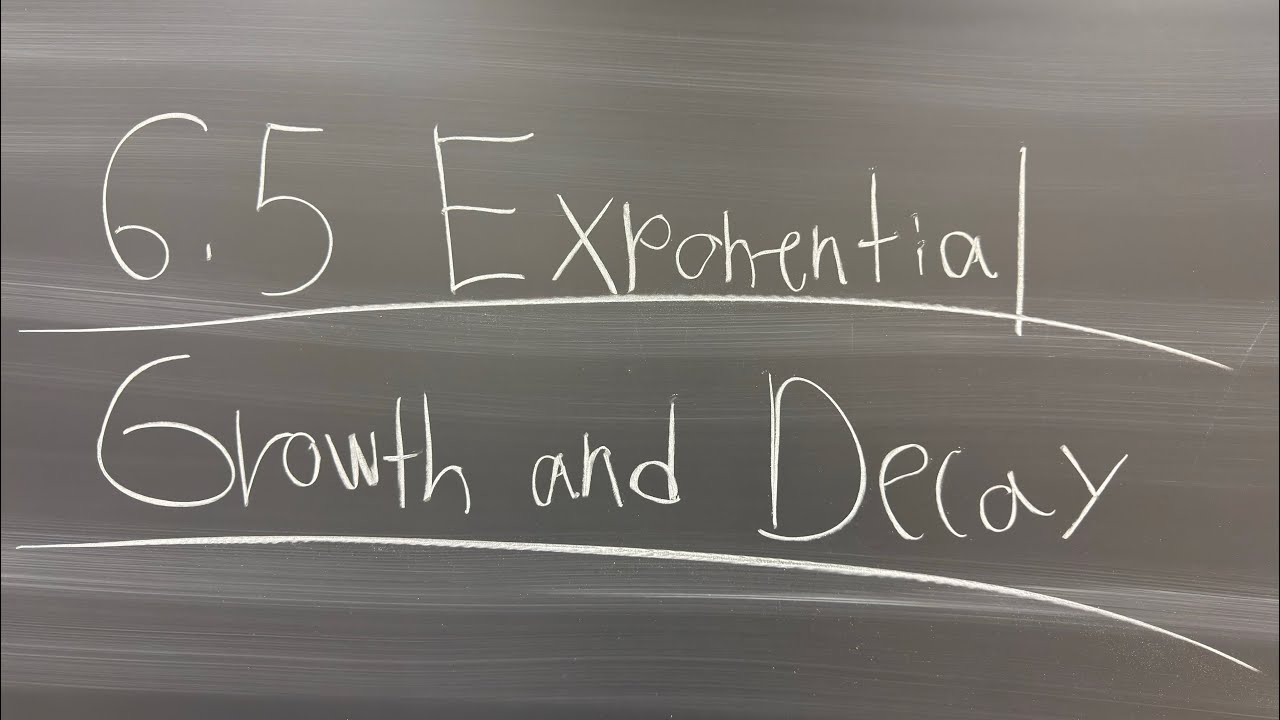 6.5 Exponential
Growth and Decay